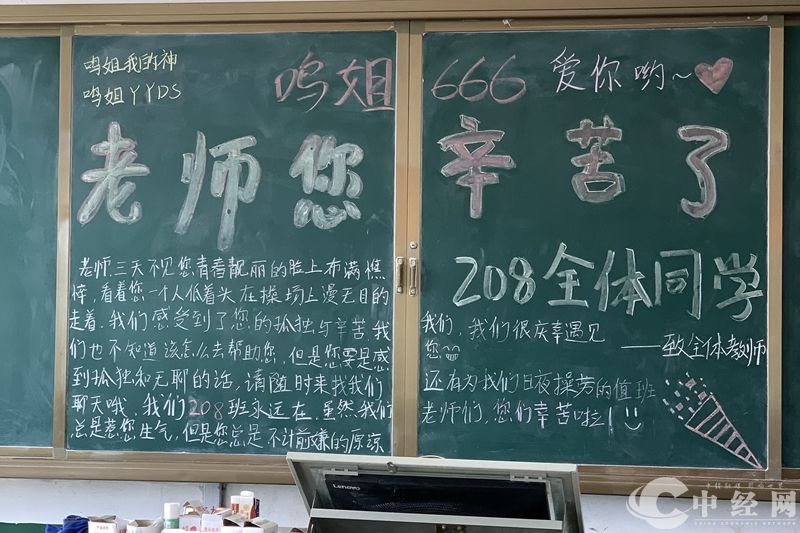 鸣姐我的神
鸣姐YYDS
鸣姐
666
爱你哟~
老师您
辛苦了
老师,三天不见您青春靓丽的脸上布满憔
悴,看着您一个人低着头在操场上漫无目的
走着.我们感受到了您的孤独与辛苦.我
们也不知道该怎么去帮助您,但是您要是感
到孤独和无聊的话,请随时来找我们
聊天哦,我们208班永远在,虽然我们
总是惹您生气,但是您总是不计前嫌的原谅
208全体同学
我们,我们很庆幸遇见
您
——致全体教师
还有为我们日夜操劳的值班
老师们,您们辛苦啦!
Lenovo
中经网
CHINA ECONOMIC NETWORK